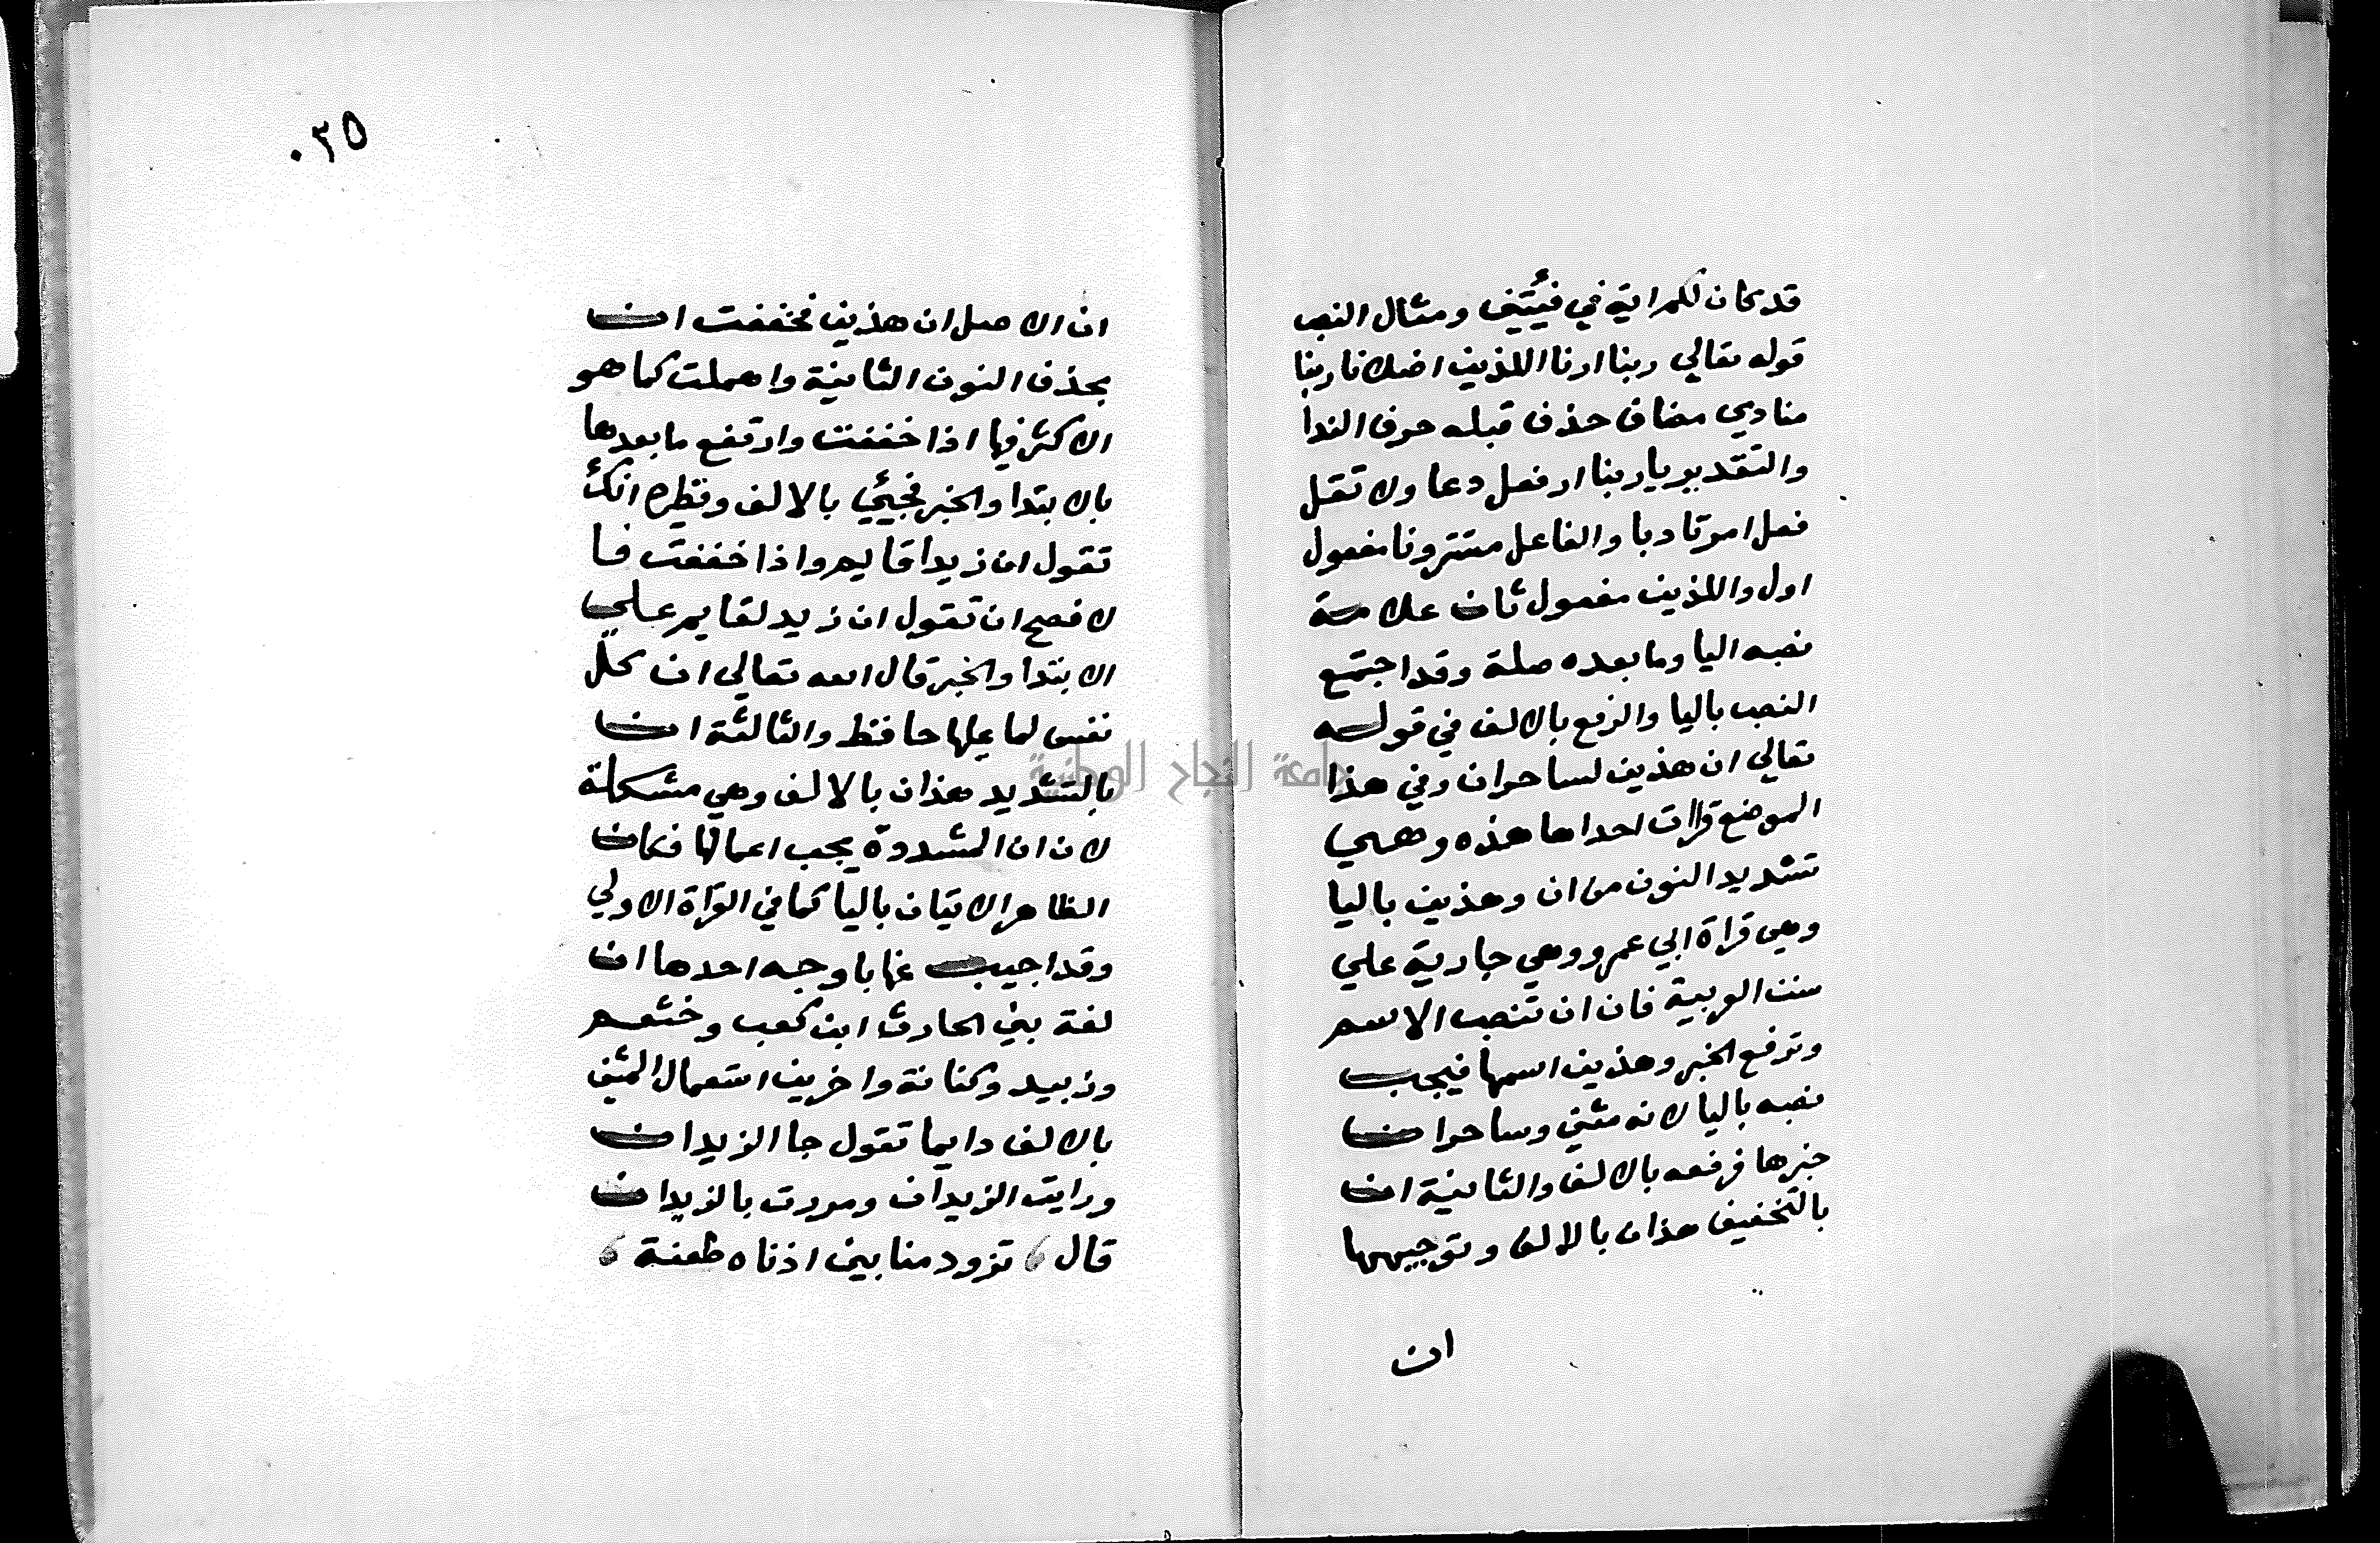 قد كان لكم اية في فئتين ومثال النصب
قوله تعالي ربنا ارنا اللذين اضلانا ربنا
منادي مضاف حذف قبله حرف الندا
والتقدير يا ربنا ار فعل دعا ولا تقل
فعل امر تادبا والفاعل مستتر ونا مفعول
اول واللذين مفعول ثان علامة
نصبه اليا وما بعده صلة وقد اجتمع
النصب باليا والرفع بالالف في قوله
تعالي ان هذين لساحران وفي هذا
الموضع قراات احداها هذه وهي
تشديد النون من ان وهذين باليا
وهي قراة ابي عمرو وهي جارية علي
سنن العربية فان ان تنصب الاسم
وترفع الخبر وهذين اسمها فيجب
نصبه باليا لانه مثني وساحران
خبرها فرفعه بالالف والثانية ان
بالتخفيف هذان بالالف وتوجيهها
ان
٠٢٥
ان الاصل ان هذين فخففت ان
بحذف النون الثانية واهملت كما هو
الاكثر فيها اذا خففت وارتفع ما بعدها
بالابتدا والخبر فجيئ بالالف ونظيره انك
تقول ان زيدا قايم واذا خففت فا
لافصح ان تقول ان زيد لقايم علي
الابتدا والخبر قال الله تعالي ان كل
نفس لما عليها حافظ والثالثة ان
بالتشديد هذان بالالف وهي مشكلة
لان ان المشددة يجب اعمالها فكان
الظاهر الاتيان باليا كما في القراة الاولي
وقد اجيب عنها باوجه احدها ان
لغة بني الحارث ابن كعب وخثعم
وزبيد وكنانة واخرين استعمال المثني
بالالف دايما تقول جا الزيدان
ورايت الزيدان ومررت بالزيدان
قال تزود منا بين اذناه طعنة
جامعة النجاح الوطنية